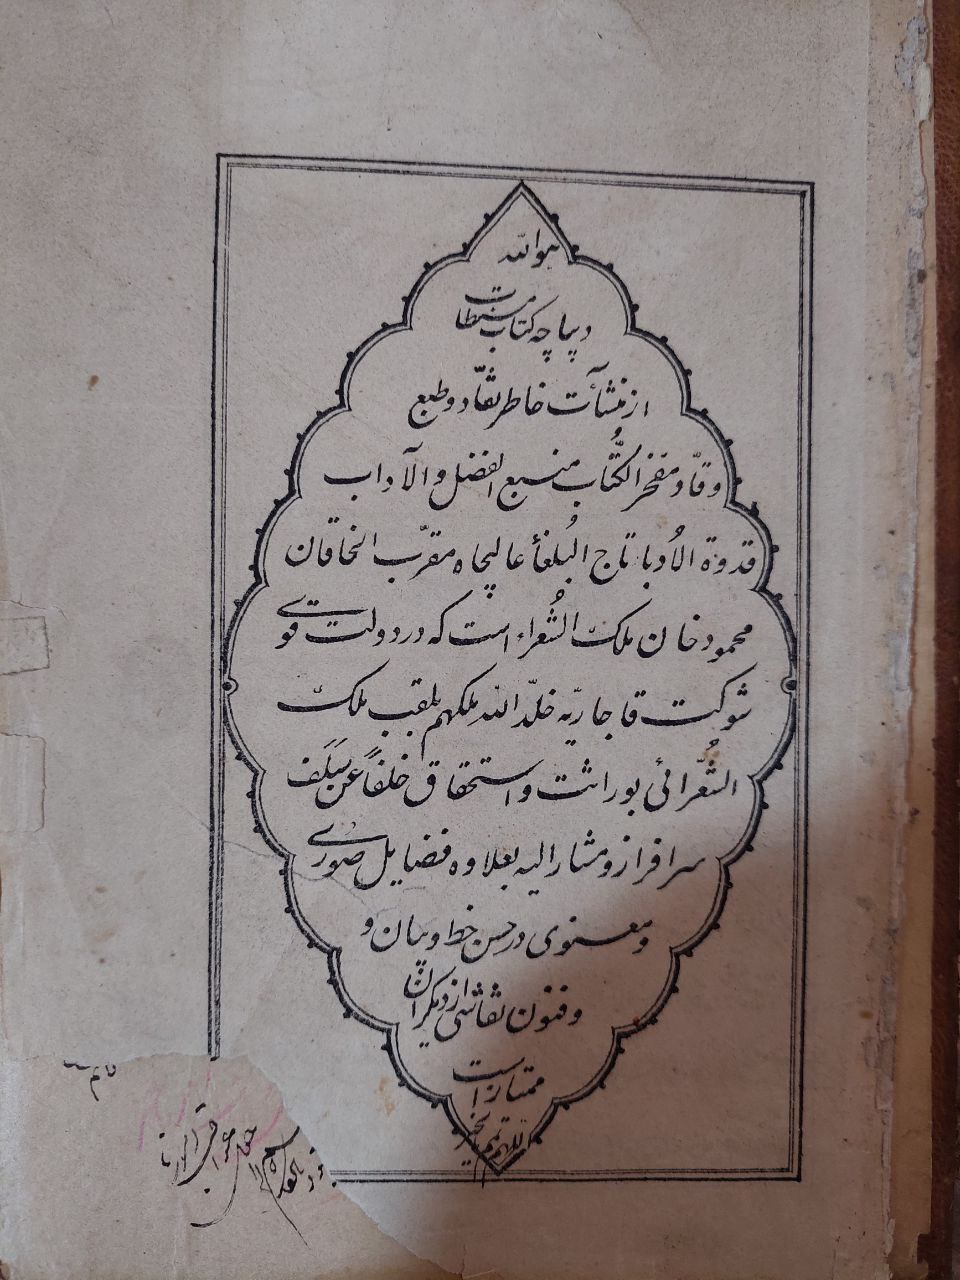 هوالله
دیباچه کتاب مستطاب
از منشآت خاطر نقّاد و طبع
وقّاد مفخر الکُتّاب منبع الفضل و الآداب
قدوة الاُدبا تاج البُلغأ عالیجاه مقرّب الخاقان
محمود خان ملک الشُعراء است که در دولت قوی
شوکت قاجاریّه خلّد الله ملکهم بلقب ملک
الشُعّرائی بوراثت و استحقاق خلفاً عن سَلَف
سرافراز و مشار الیه بعلاوه فضایل صوری
و معنوی در حسن خط و بیان و
و فنون نقّاشی از دیگران
ممتاز است
اللهم تمم بالخیر